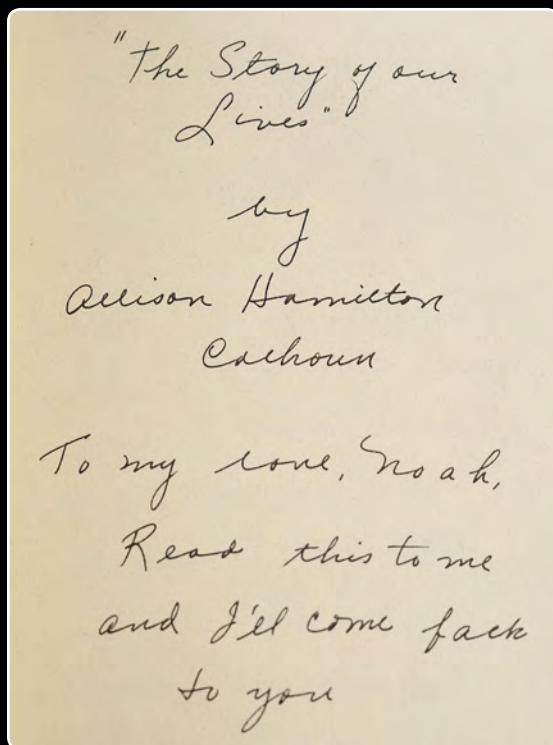 "The Story of our
Lives"
by
Allison Hamilton
Calhoun
To my love, Noah,
Read this to me
and I'll come back
to you